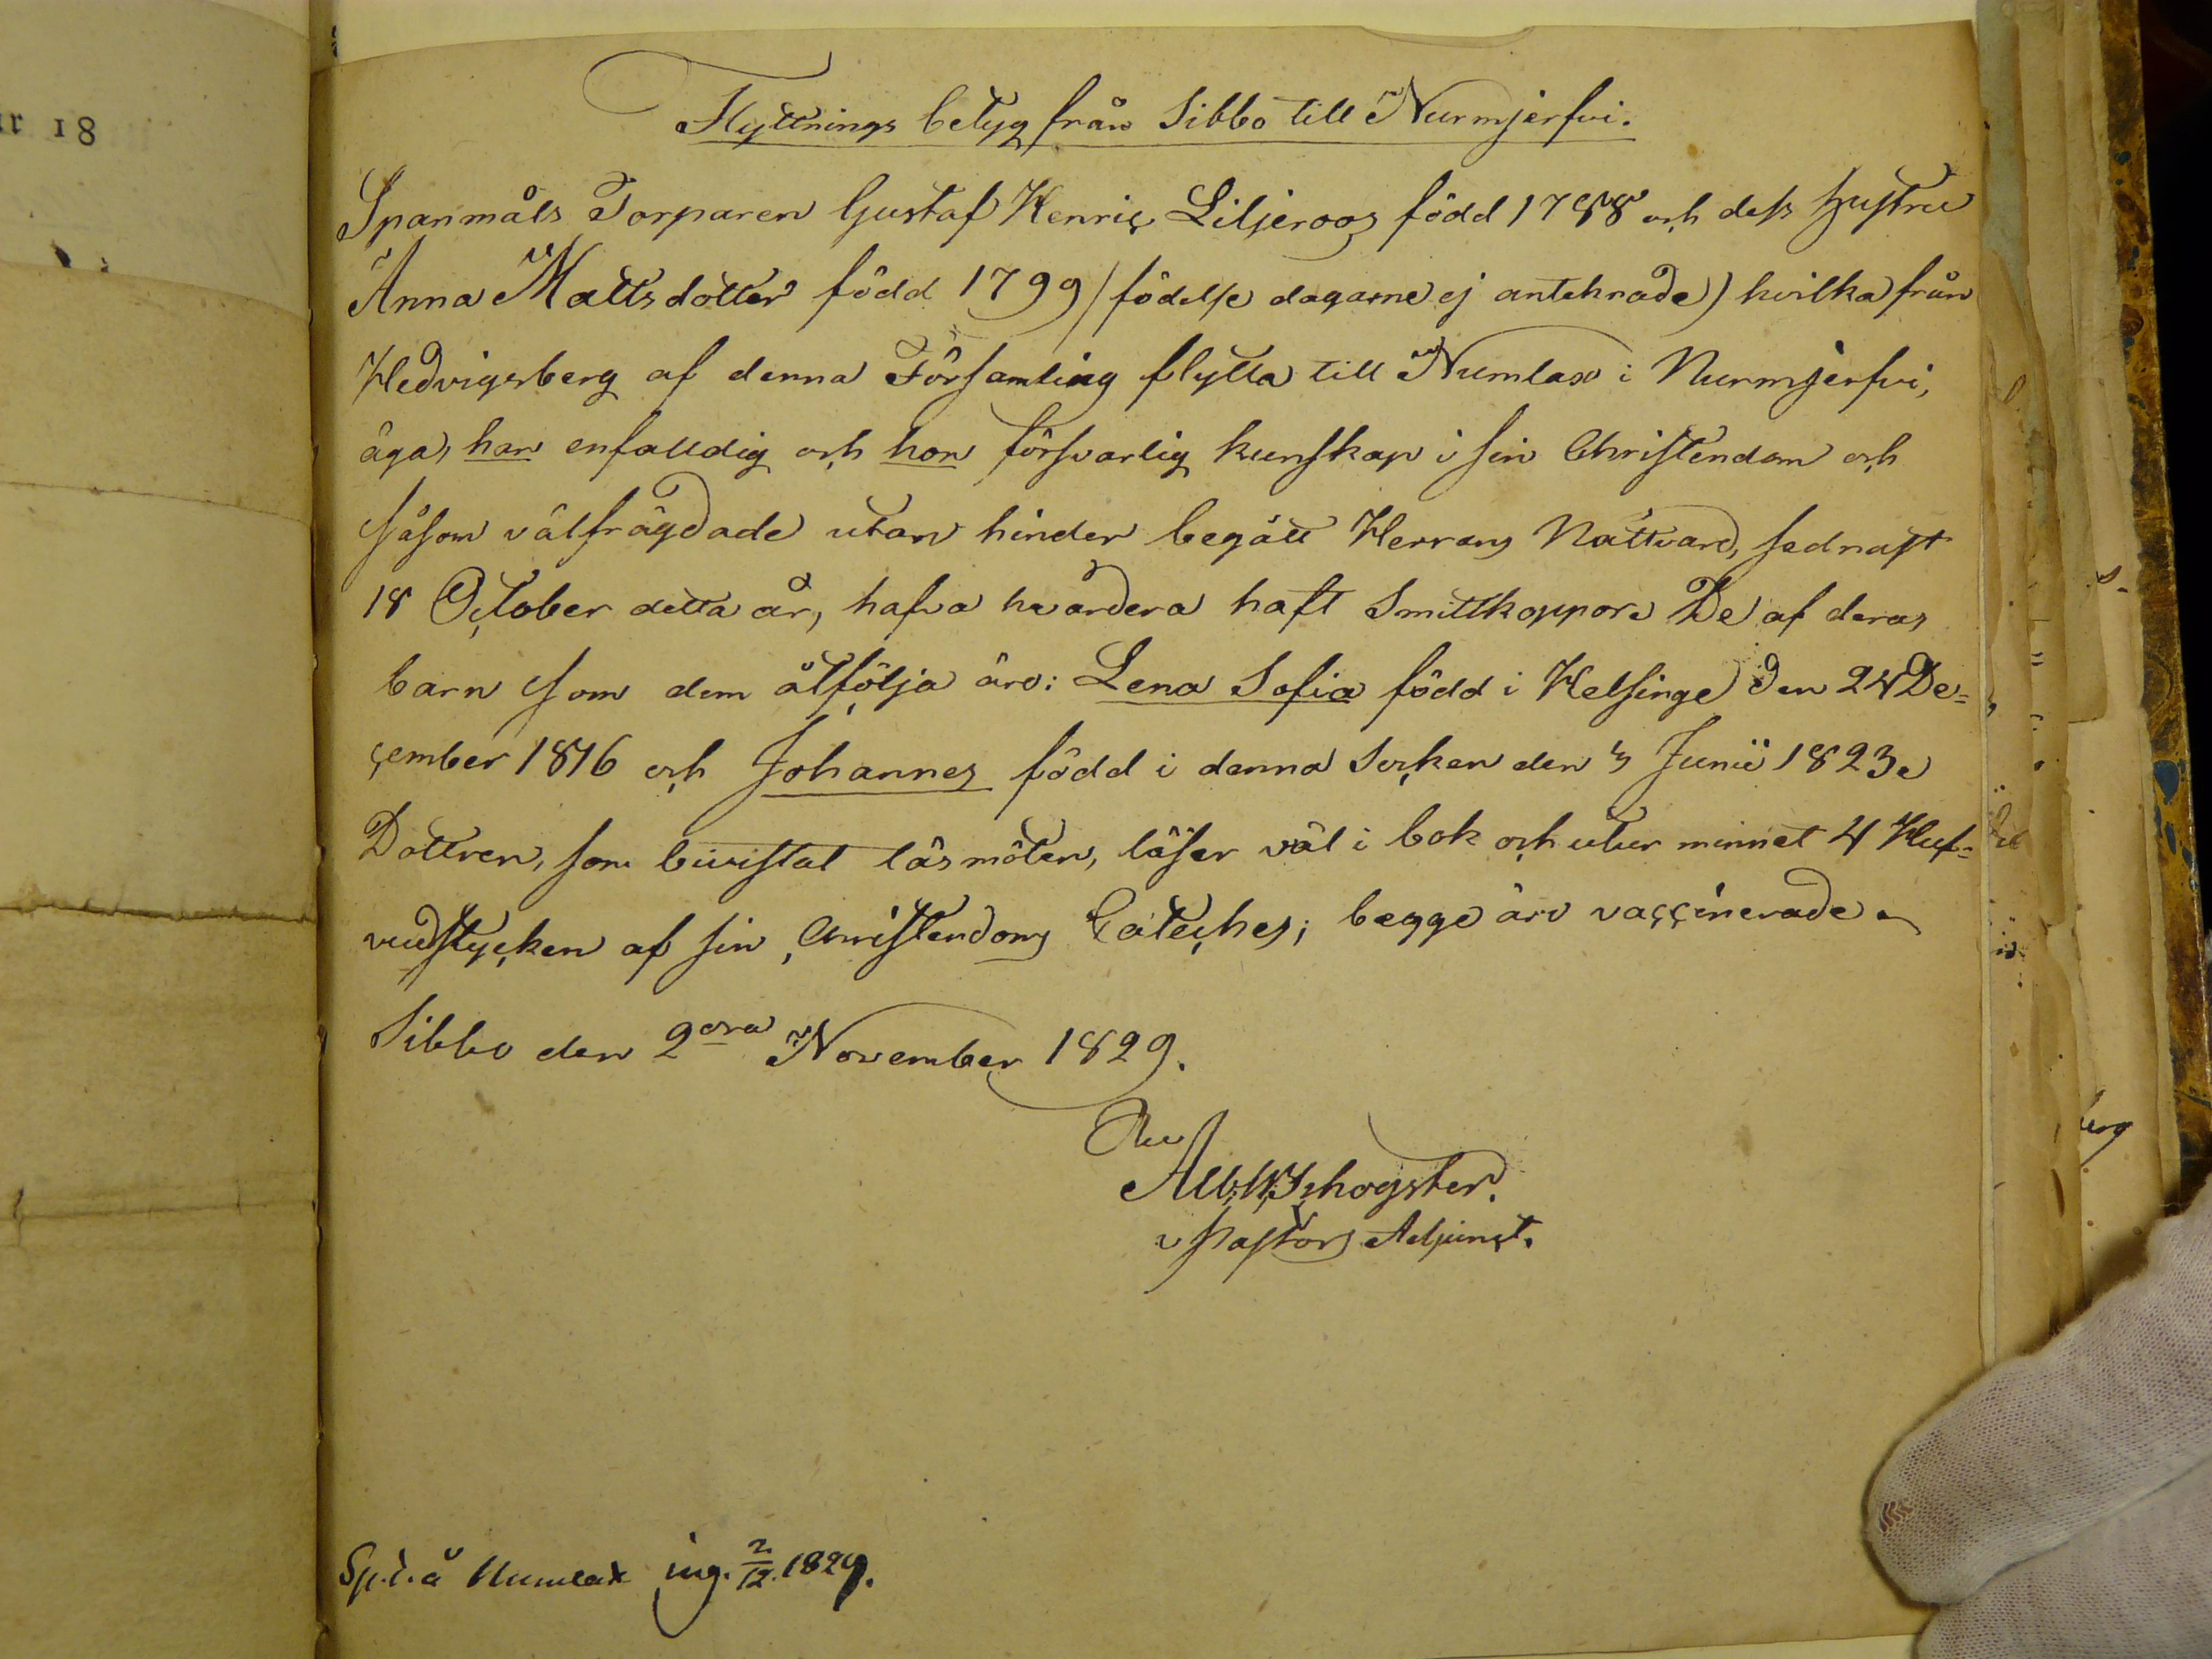 ar 18
Flyttnings betyg från Sibbo till Nurmjerfvi.
Spanmåls Torparen Gustaf Henric Liljeroos född 1788 och dess hustru
Anna Mattsdotter född 1799 (födelse dagarne ej anteknade) hvilka från
Hedvigsberg af denna Församling flytta till Numlax i Nurmjerfvi,
äga, han enfalldig och hon försvarlig kunskap i sin Christendom och
såsom välfrägdade utan hinder begått Herrans Nattvard, sednast
18 October detta år, hafva hvardera haft Smittkoppor. De af deras
barn som dem åtfölja äro: Lena Sofia född i Helsinge den 24 De=
cember 1816 och Johannes född i denna Socken den 3 Junii 1823.
Dottren, som bivistat läsmöten, läser väl i bok och utur minnet 4 Huf=
vudstycken af sin Christendoms Cateches; begge äro vaccinerade.
Sibbo den 2dra November 1829.
Pastors Adjunct.
Sp. t. å Numlax ing. 2/12. 1829.